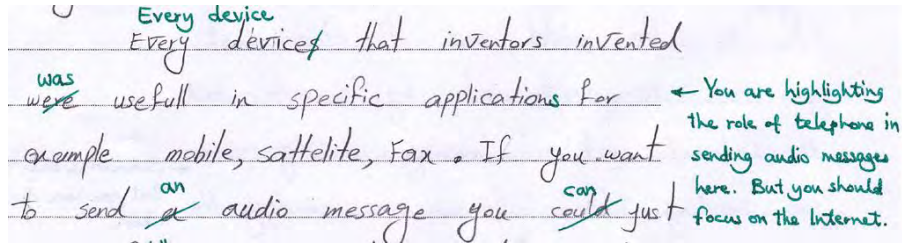 Every device
Every devices that inventors invented
was
were usefull in specific applications for
example mobile, sattelite, Fax. If you want
an can
to send a audio message you could just
← You are highlighting
the role of telephone in
sending audio messages
here. But you should
focus on the Internet.